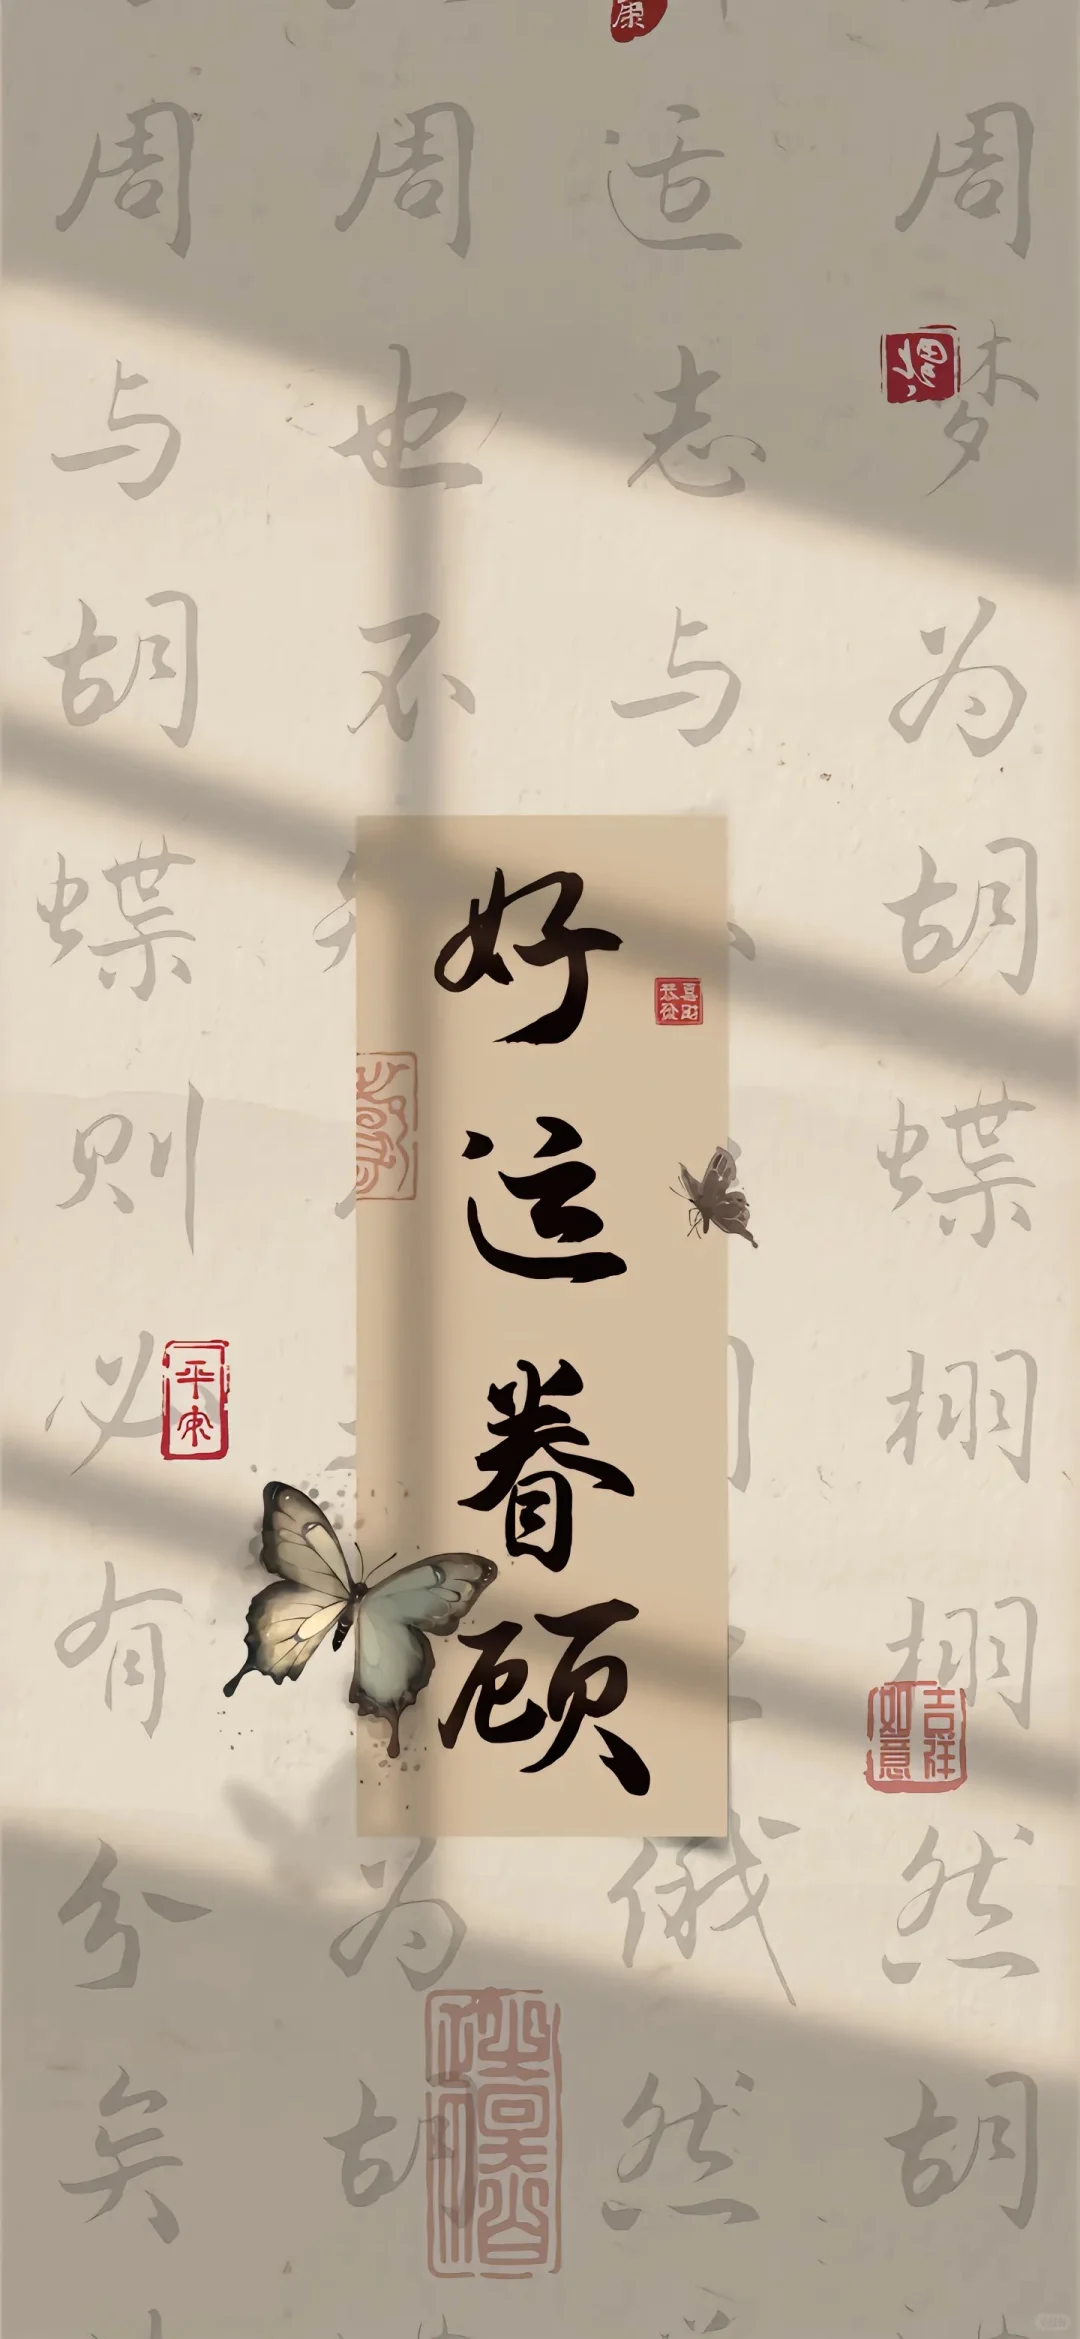 好运眷顾
周梦为胡蝶栩栩然胡
适志与
俄然
周也不
为胡
周与胡蝶则必有分矣
康
平安
吉祥如意